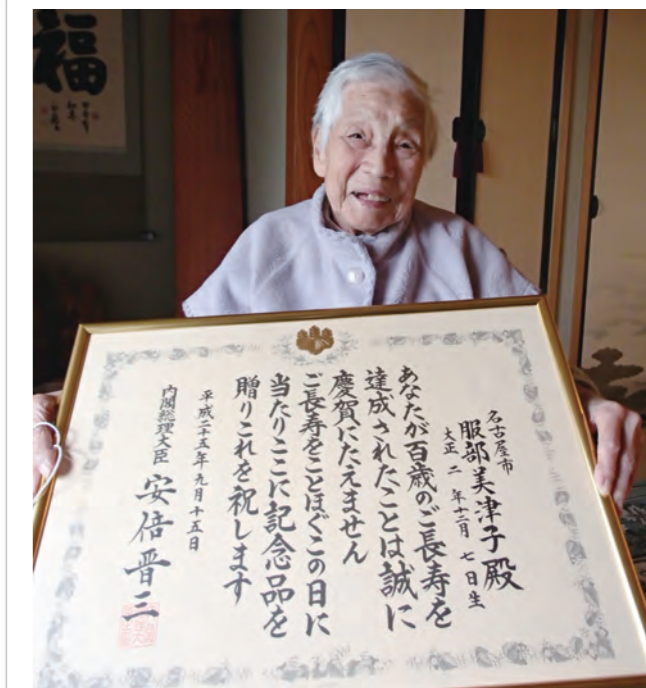 名古屋市
服部美津子殿
大正二年十二月七日生
あなたが百歳のご長寿を
達成されたことは誠に
慶賀にたえません
ご長寿をことほぐこの日に
当たりここに記念品を
贈りこれを祝します
平成二十五年九月十五日
内閣総理大臣 安倍晋三
福